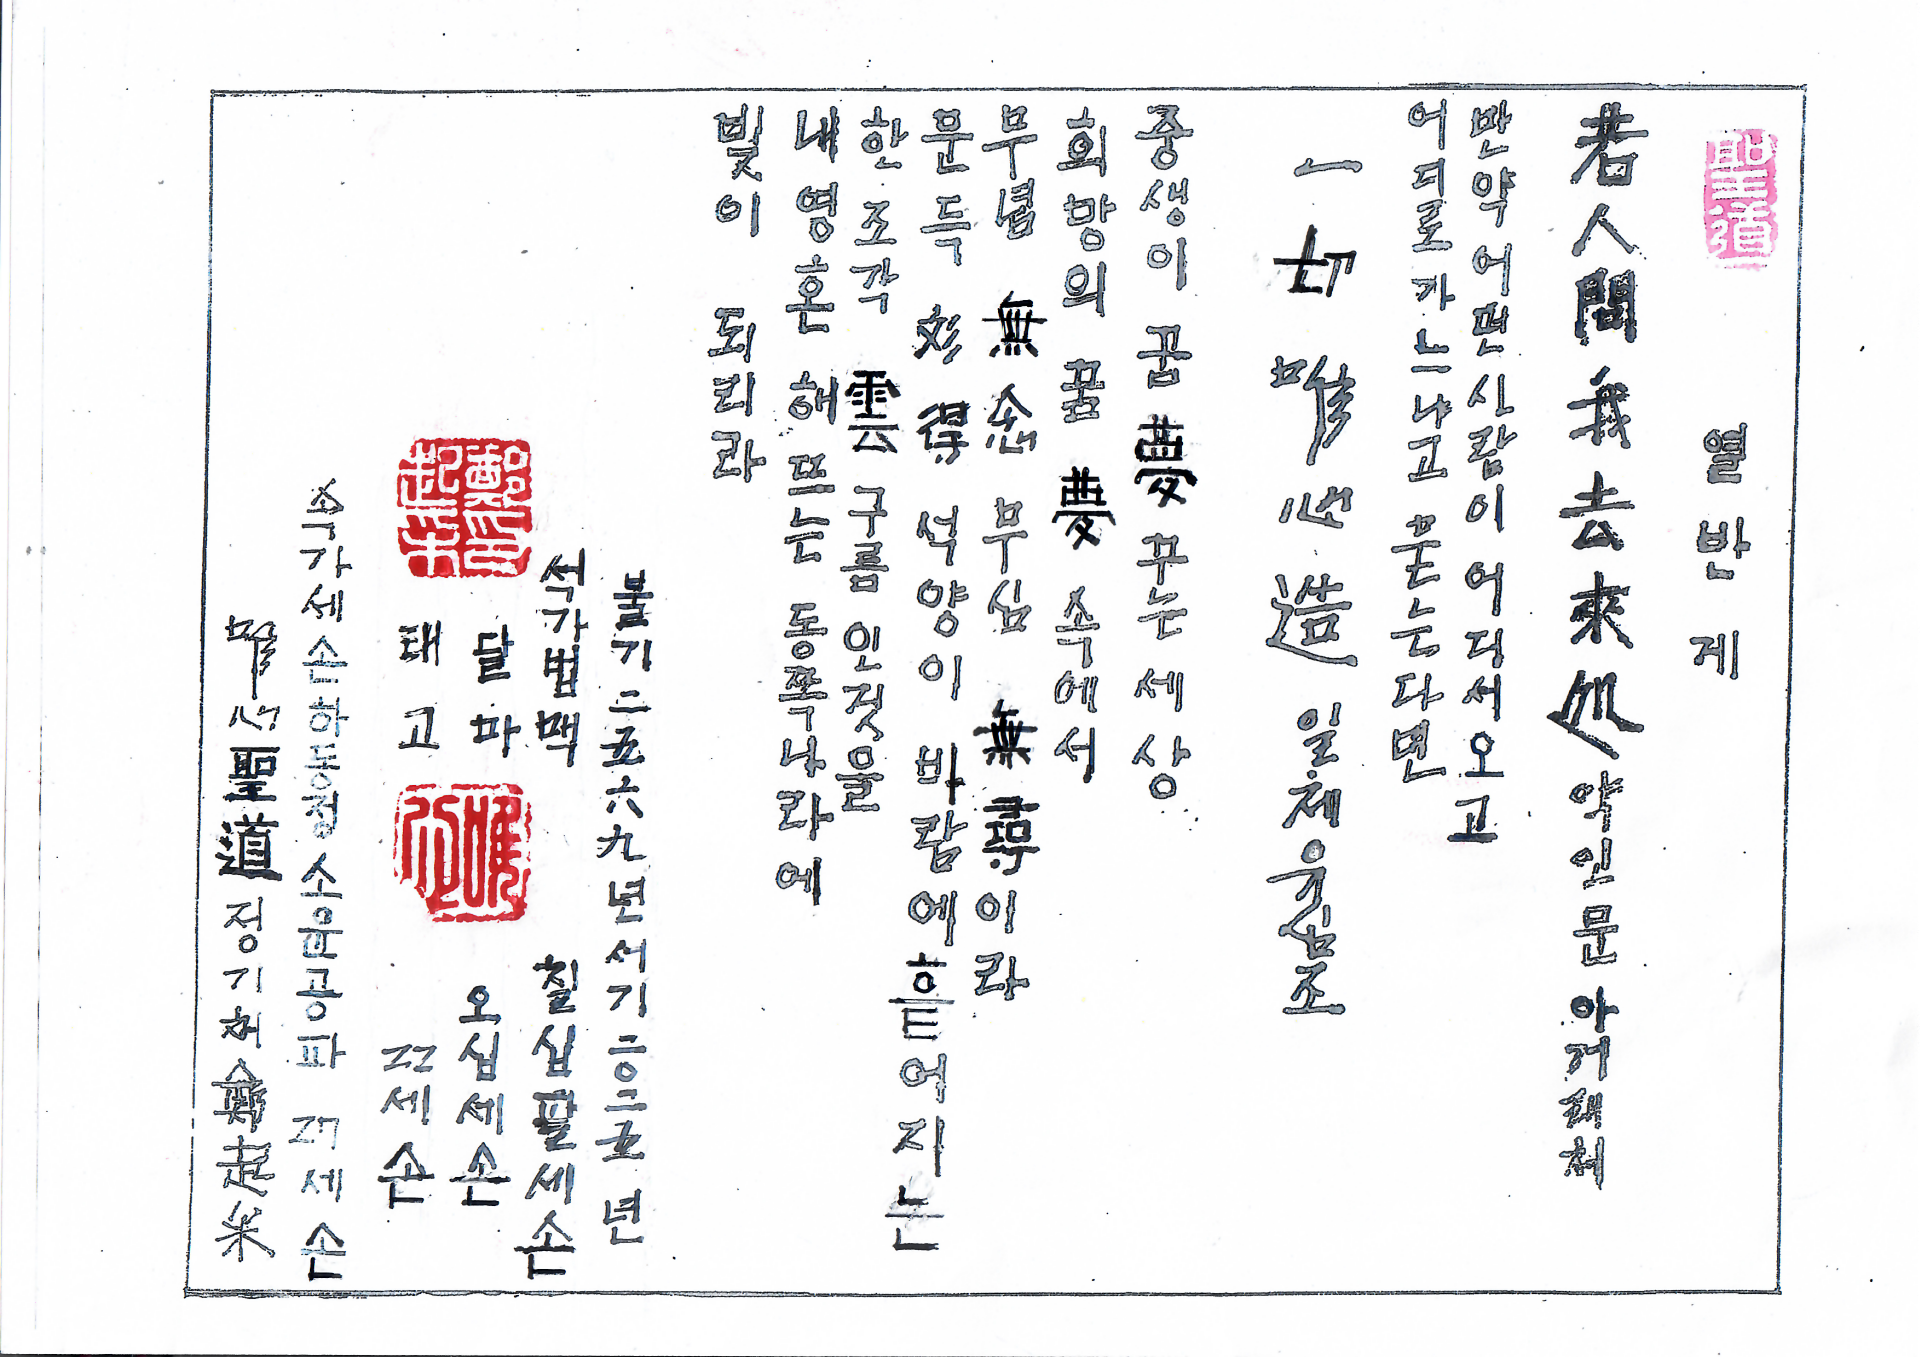 聖道
열반게
若人問我去來処 약인문아거래처
만약 어떤 사람이 어디서 오고
어디로 가느냐고 묻는다면
一切唯心造 일체유심조
중생이 꿈 夢 꾸는 세상
희망의 꿈 夢 속에서
무념 無念 무심 無尋이라
문득 得 석양이 바람에 흩어지는
한조각 雲 구름 인것을
내 영혼 해뜨는 동쪽나라에
빛이 되리라
불기 二五六九년 서기 二〇二五년
석가법맥 칠십팔세손
달마 오십세손
태고 세손
鄭起采印
속가세손 하동정 소윤공파 세손
唯心聖道 정기채 鄭起采